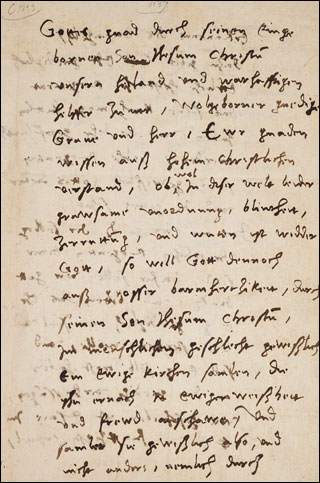 Gottes gnad durch seinen einge
bornen Son Jhesum Christū
unsern heiland und warhafftigen
helffer zuuor, Wolgeborner gnediger
Graue und herr, Ewr gnaden
wissen auß hohem Christlichen
verstand, ob wol in diser welt leider
grawsame unordnung, blintheit,
Zerruttūg, und wuten ist widder
Gott, so will Gott dennoch
auß grosser barmherzikeit, durch
seinen Son Jhesum Christū,
im menschlichen geschlecht gewißlich
Ein ewige kirchen samlen, die
ehr ernach zu ewiger weißheit
und frewd, und
samlet sie gewißlich also, und
nicht anders, nemlich durch